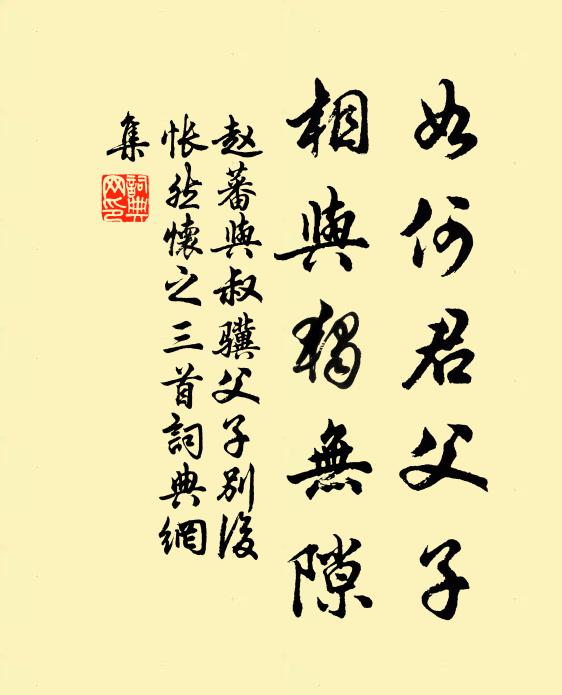 如何君父子
相與獨無隙
赵蕃與叔骥父子别後
怅然懷之三首詞典網
集
詞典
网印